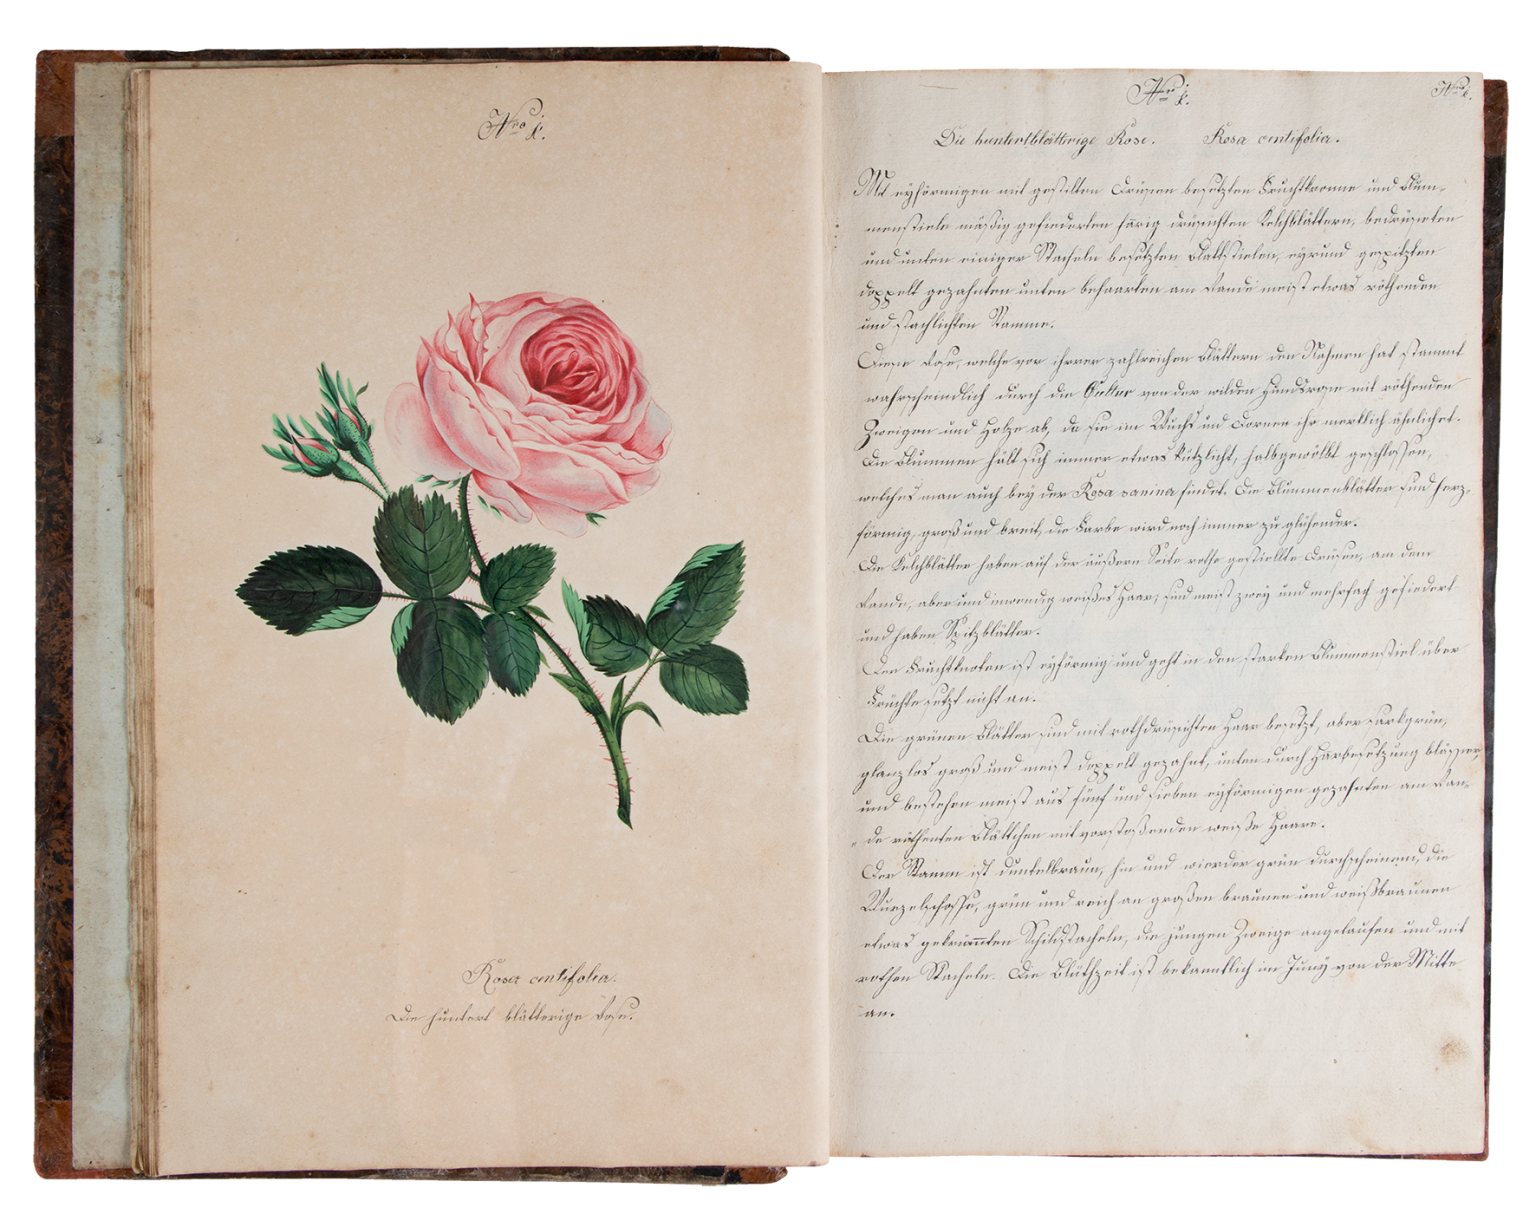 Nro 1.
Rosa centifolia.
Die hundert blätterige Rose.
Nro 1.
Nro 1.
Die hundertblätterige Rose. Rosa centifolia.
Mit eyförmigen mit gestilten Drüsen besetzten Fruchtkronne und Blum-
menstiele mäsig gefiederten farig drüsichten Kelchblättern, bedrüseten
und unten einiger Stacheln besetzten Blattstielen, eyrund gespitzten
doppelt gezahnten unten behaarten am Rande meist etwas röthenden
und stachlichten Stamme.
Diese Rose, welche vor ihrer zahlreichen Blättern den Nahmen hat stammt
wahrscheindlich durch die Cultur von der wilden Hundsrose mit röthenden
Zweigen und Holze ab, da sie im Wuchs und Dornen ihr merklich ähnlichet.
Die Blummen hält sich immer etwas kützlicht, halbgewölbt geschlossen,
welches man auch bey der Rosa canina findet. Die Blummenblätter sind herz-
förmig, groß und breit, die Farbe wird noch immer zu glühender.
Die Kelchblätter haben auf der äußern Seite rothe gestiellte Drüsen, am dem
Rande, aber und inwendig weißes Haar, sind meist zwey und mehrfach gefiedert
und haben Spitzblätter.
Der Fruchtknoten ist eyförmig und geht in den starken Blummenstiel über
Früchte setzt nicht an.
Die grünen Blätter sind mit rothdrüsichten Haar besetzt, aber sarkgrün,
glanzlos groß und meist doppelt gezahnt, unten durch Harbesetzung blässer,
und bestehen meist aus fünf und sieben eyförmigen gezahnten am Ran-
de röthenten Blättchen mit vorstoßenden weiße Haare.
Der Stamm ist dunkelbraun, hin und wierder grün durchscheinend, die
Wurzelschosse, grün und reich an großen braunen und weißbraunen
etwas gekrümmten Schildstacheln, die jungen Zweige angelaufen und mit
rothen Stacheln. Die Blüthzeit ist bekanntlich im Juny von der Mitte
an.